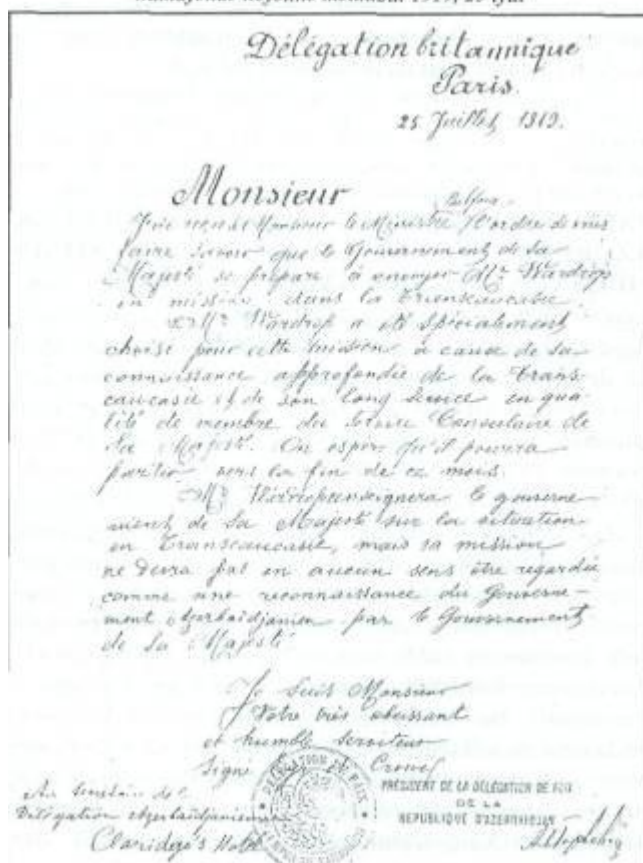 Délégation britannique
Paris.
25 Juillet 1919.
Monsieur
Balfour
le Ministre l'ordre de vous
faire savoir que le Gouvernement de sa
Majesté se prépare à envoyer Mr Wardrop
en mission dans la Transcaucasie.
Mr Wardrop a été spécialement
choisi pour cette mission à cause de sa
connaissance approfondie de la Trans-
caucasie et de son long service en qua-
lité de membre du service Consulaire de
Sa Majesté. On espère qu'il pourra
partir vers la fin de ce mois.
Mr renseignera le gouverne-
ment de Sa Majesté sur la situation
en Transcaucasie, mais sa mission
ne devra pas en aucun sens être regardée
comme une reconnaissance du Gouverne-
ment Azerbaïdjanien par le Gouvernement
de Sa Majesté
Je suis Monsieur
Votre très obéissant
et humble serviteur
Signé Crowe
PRÉSIDENT DE LA DÉLÉGATION DE PAIX
DE LA
RÉPUBLIQUE D'AZERBAIDJAN
DÉLÉGATION DE PAIX
Délégation Azerbaïdjanienne
Claridge's Hotel